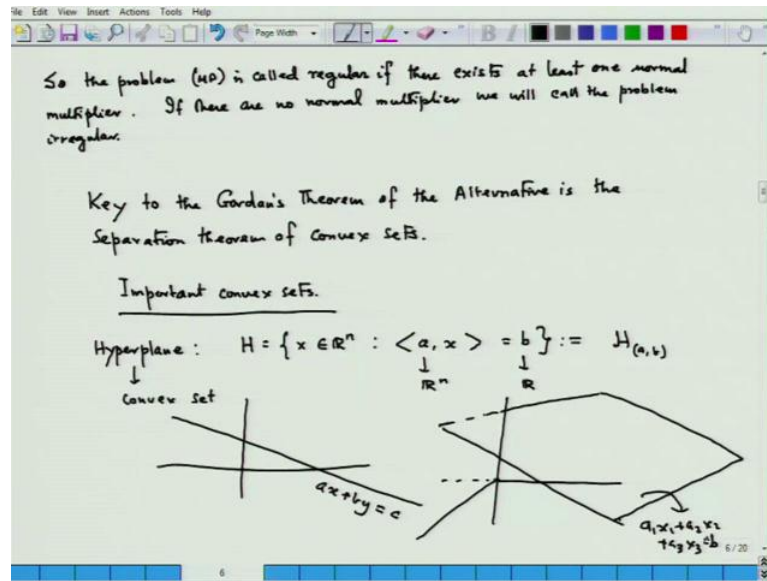 File Edit View Insert Actions Tools Help
Page Width
B I
So the problem (MP) is called regular if there exists at least one normal
multiplier. If there are no normal multiplier we will call the problem
irregular.
Key to the Gordan's Theorem of the Alternative is the
Separation theorem of convex sets.
Important convex sets.
Hyperplane : H = { x ∈ ℝⁿ : < a, x > = b } := H(a,b)
↓ ↓ ↓
ℝⁿ ℝ
Convex set
ax+by=c
a₁x₁+a₂x₂
+a₃x₃=b
6/20
6